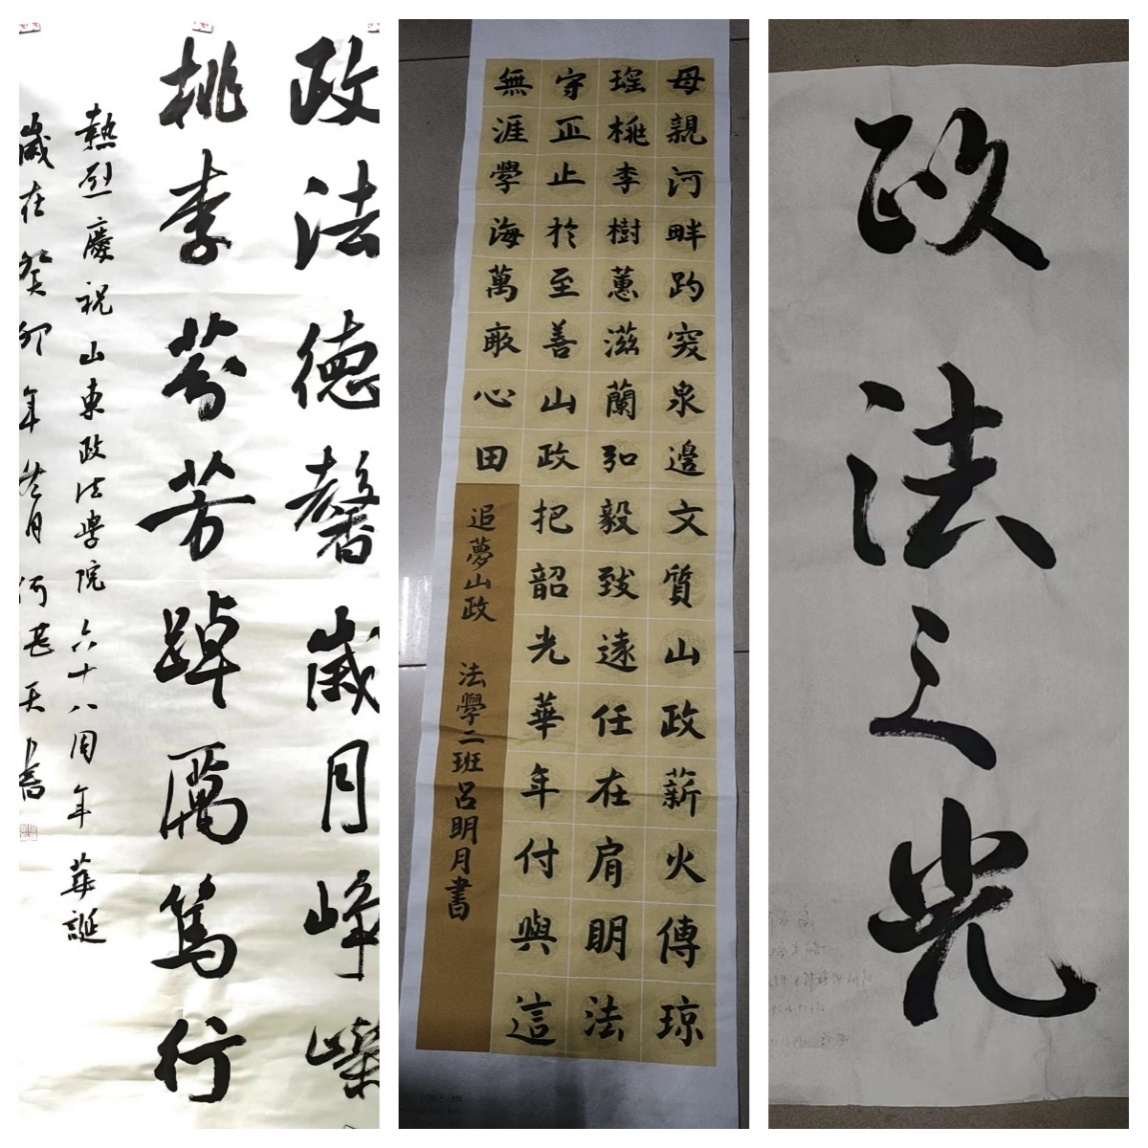 政法德馨歲月崢嶸
桃李芬芳踔厲篤行
熱烈慶祝山東政法學院六十八周年 華誕
歲在癸卯年冬月何 天 書
母親河畔趵突泉邊文質山政薪火傳琼
瑤桃李樹蕙滋蘭弘毅致遠任在肩明法
守正止於至善山政把韶光華年付與這
無涯學海萬畝心田
追夢山政 法學二班呂明月書
政法之光